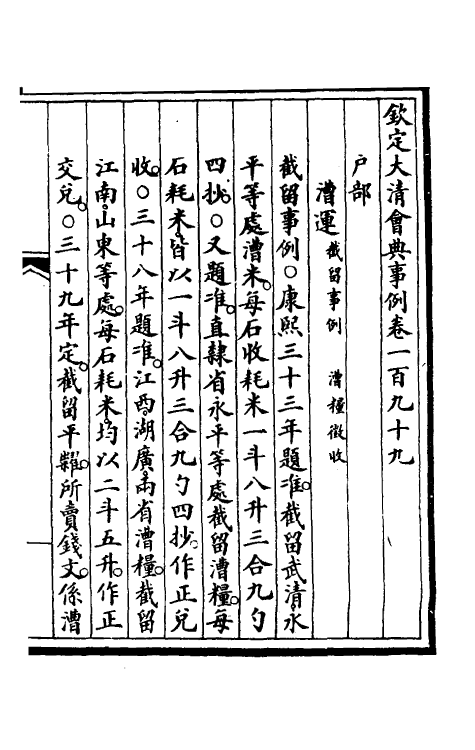 欽定大清會典事例卷一百九十九
戶部
漕運 截留事例 漕糧徵收
截留事例○康熙三十三年題准。截留武清永
平等處漕米。每石收耗米一斗八升三合九勺
四抄。○又題准。直隸省永平等處截留漕糧。每
石耗米。皆以一斗八升三合九勺四抄。作正兌
收。○三十八年題准。江西湖廣兩省漕糧。截留
江南山東等處。每石耗米。均以二斗五升。作正
交兌。○三十九年定。截留平糶。所賣錢文。係漕